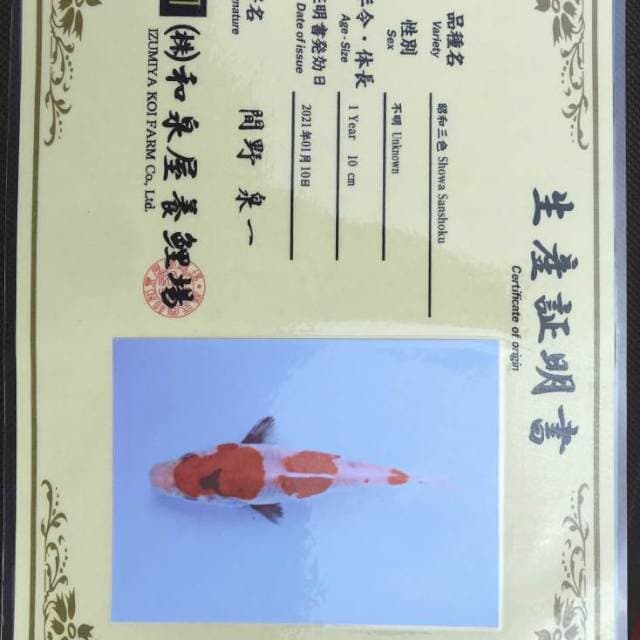 生産証明書
Certificate of origin
品種名 昭和三色 Showa Sanshoku
Variety
性別 不明 Unknown
Sex
令・体長 1 Year 10 cm
Age・Size
証明書発効日 2021年01月10日
Date of issue
名 間野 泉一
(株)和泉屋養鯉場
IZUMIYA KOI FARM Co., Ltd.